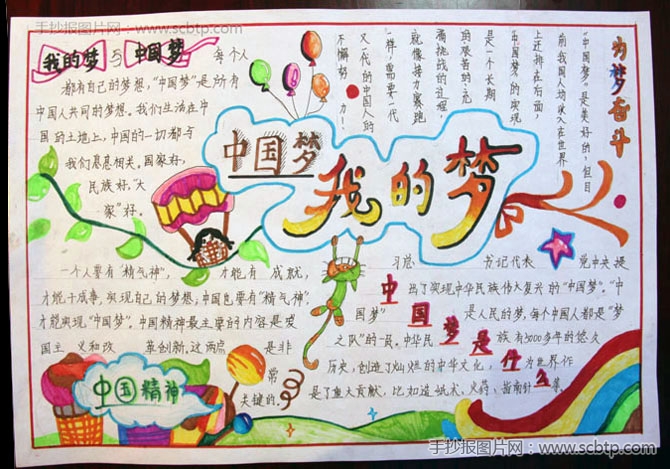 手抄报图片网：www.scbtp.com
我的梦与中国梦
每个人
都有自己的梦想，“中国梦”是所有
中国人共同的梦想。我们生活在中
国的土地上，中国的一切都与
我们息息相关。国家好，
民族好，“大
家”好。
中国梦
我的梦
为梦奋斗
“中国梦”是美好的，但目
前我国人均收入在世界
上还排在后面，
中国梦的实现
是一个长期
的艰苦的充
满挑战的过程，
就像接力赛跑
一样，需要一代
又一代的中国人的
不懈努力！
一个人要有“精气神”，才能有成就，
才能干成事，实现自己的梦想；中国也要有“精气神”，
才能实现“中国梦”。中国精神最主要的内容是爱
国主义和改革创新。这两点是非
常
关键的。
中国精神
习总书记代表党中央提
出了实现中华民族伟大复兴的“中国梦”。“中
国梦”是人民的梦，每个中国人都是“梦
之队”的一员。中华民族有5000多年的悠久
历史，创造了灿烂的中华文化，为世界作
出了重大贡献，比如造纸术、火药、指南针等。
中国梦是什么
手抄报图片网：www.scbtp.com